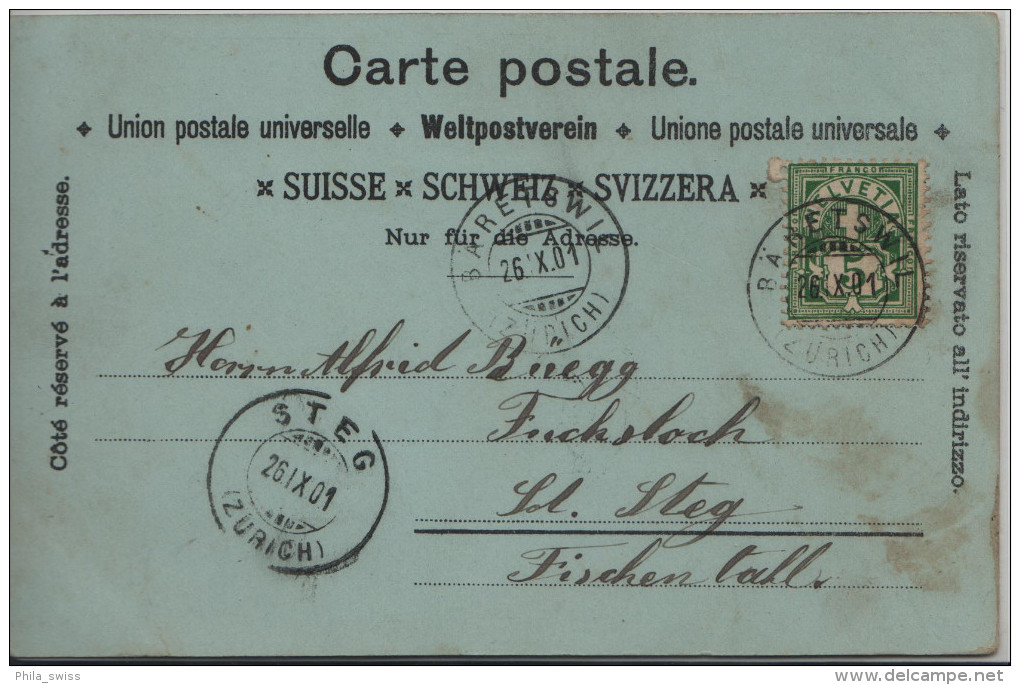 Carte postale.
Union postale universelle Weltpostverein Unione postale universale
SUISSE SCHWEIZ SVIZZERA
Nur für die Adresse.
Côté réservé à l'adresse.
Lato riservato all' indirizzo.
FRANCO
HELVETIA
5
BÄRETSWIL
26.IX.01
(ZÜRICH)
BÄRETSWIL
26.IX.01
(ZÜRICH)
Herrn Alfred Büegg
Fuchsloch
Sd. Steg
Fischenthall.
STEG
26.IX.01
(ZÜRICH)
Phila_swiss
www.delcampe.net